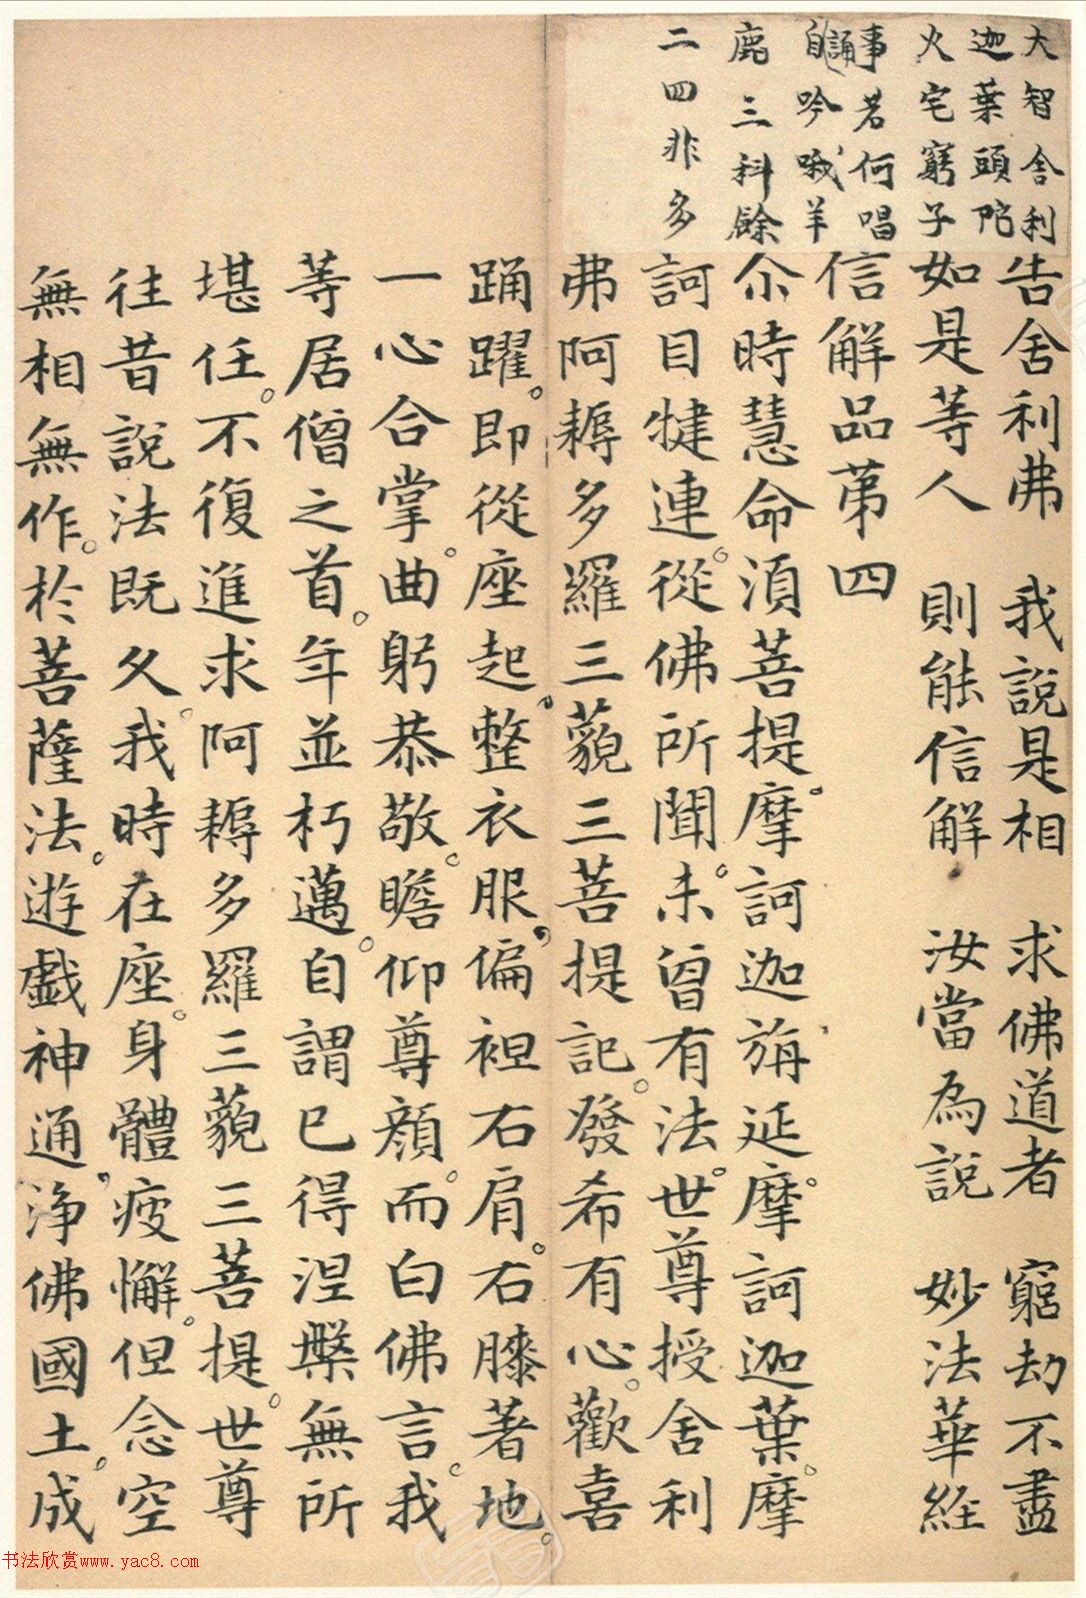 大智舍利
迦葉頭陀
火宅窮子
事若何唱
誦
自吟哦羊
鹿三科餘
二四非多
告舍利弗　我說是相　求佛道者　窮劫不盡
如是等人　則能信解　汝當為說　妙法華經
信解品第四
尒時慧命湏菩提摩訶迦旃延摩訶迦葉摩
訶目犍連從佛所聞未曾有法世尊授舍利
弗阿耨多羅三藐三菩提記發希有心歡喜
踊躍即從座起整衣服偏袒右肩右膝著地
一心合掌曲躬恭敬瞻仰尊顏而白佛言我
等居僧之首年並朽邁自謂已得涅槃無所
堪任不復進求阿耨多羅三藐三菩提世尊
往昔說法既久我時在座身體疲懈但念空
無相無作於菩薩法遊戲神通淨佛國土成
书法欣赏www.yac8.com